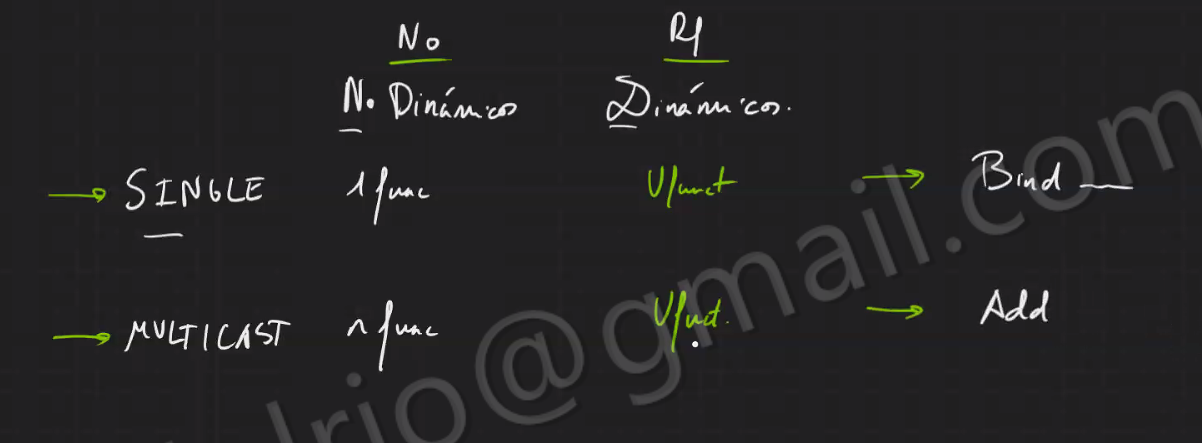 No BP
No Dinámicos Dinámicos.
→ SINGLE 1 func Ufunct → Bind __
→ MULTICAST n func Ufunct. → Add
lrio@gmail.com